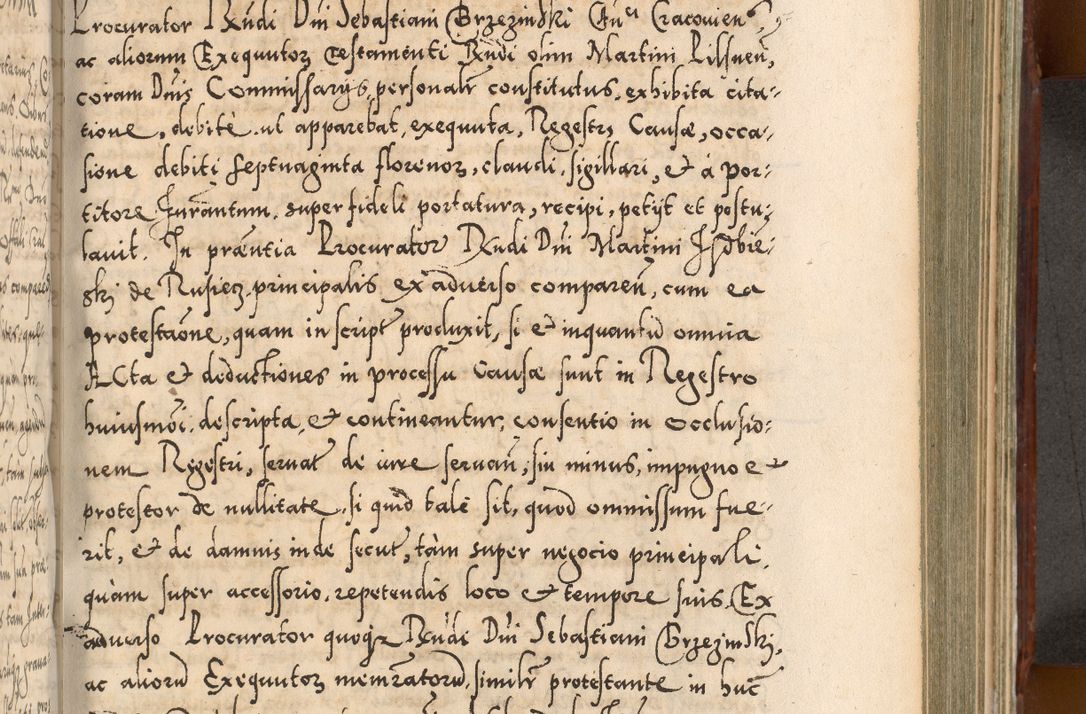 Procurator Rndi Dni Sebastiani Brzezinski Cnci Cracovien.
ac aliorum Exequutorz testamenti Rndi olim Martini Pilsnen,
coram Dnis Commissarijs, personalr constitutus, exhibita cita-
tione, debitè ut apparebat, exequuta, Regestrz Causæ, occa-
sione debiti septuaginta florenorz, claudi, sigillari, et à por-
titore Jurantum. super fideli portatura, recipi, petijt et postu-
lavit. In præntia Procurator Rndi Dni Martini Isdbie-
ski de Rusiecz principalis ex adverso comparen, cum ea
protestaone, quam in script produxit, si et inquantu omnia
Acta et deductiones in processu Causæ sunt in Regestro
huiusmoi. descripta, et contineantur, consentio in occlusio-
nem Regestri, servat de iure servan, sin minus, impugno et
protestor de nullitate, si quid tale sit, quod ommissum fue-
rit, et de damnis inde secut, tàm super negocio principali,
quàm super accessorio, repetendis loco et tempore suis. Ex
adverso Procurator quoqz Rndi Dni Sebastiani Brzezinski,
ac alioru Exequutorz memratoru, similr protestante in huc